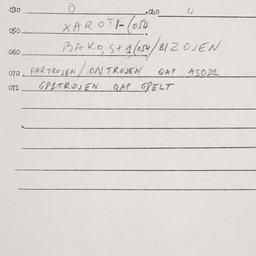 030 0 .040 U
050 XAROTI-(054
060 BAKO, S+1(054/BIZOJEN
070 FARTROJEN/OPVTROJEN QAP ASOD2
072 GP1TROJEN QAP GPELT